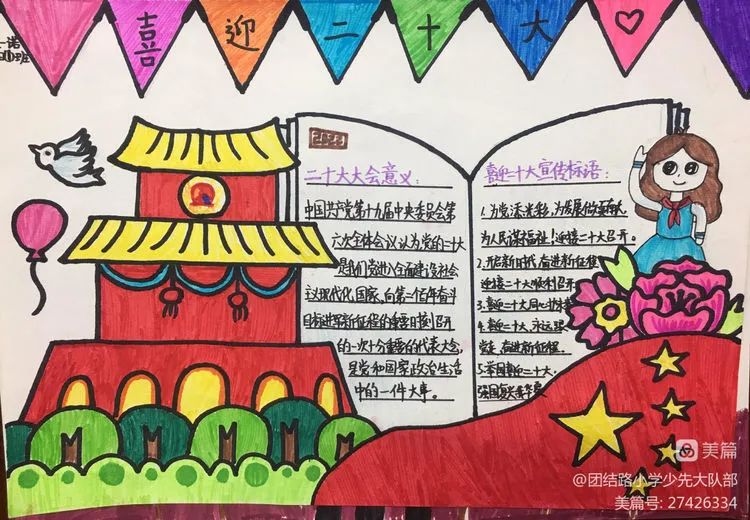 喜迎二十大
诺
班
2022
二十大大会意义:
中国共产党第十九届中央委员会第
六次全体会议认为党的二十大
是我们党进入全面建设社会
主义现代化国家,向第二个百年奋斗
目标进军新征程的重要时刻召开
的一次十分重要的代表大会,
是党和国家政治生活
中的一件大事。
喜迎二十大宣传标语:
1.为党添光彩,为发展作贡献
为人民谋福祉!迎接二十大召开。
2.开启新时代,奋进新征程
迎接二十大顺利召开
3.喜迎二十大同心
4.喜迎二十大,永远跟
党走,奋进新征程。
5.举国喜迎二十大,
强国复兴
美篇
@团结路小学少先大队部
美篇号: 27426334